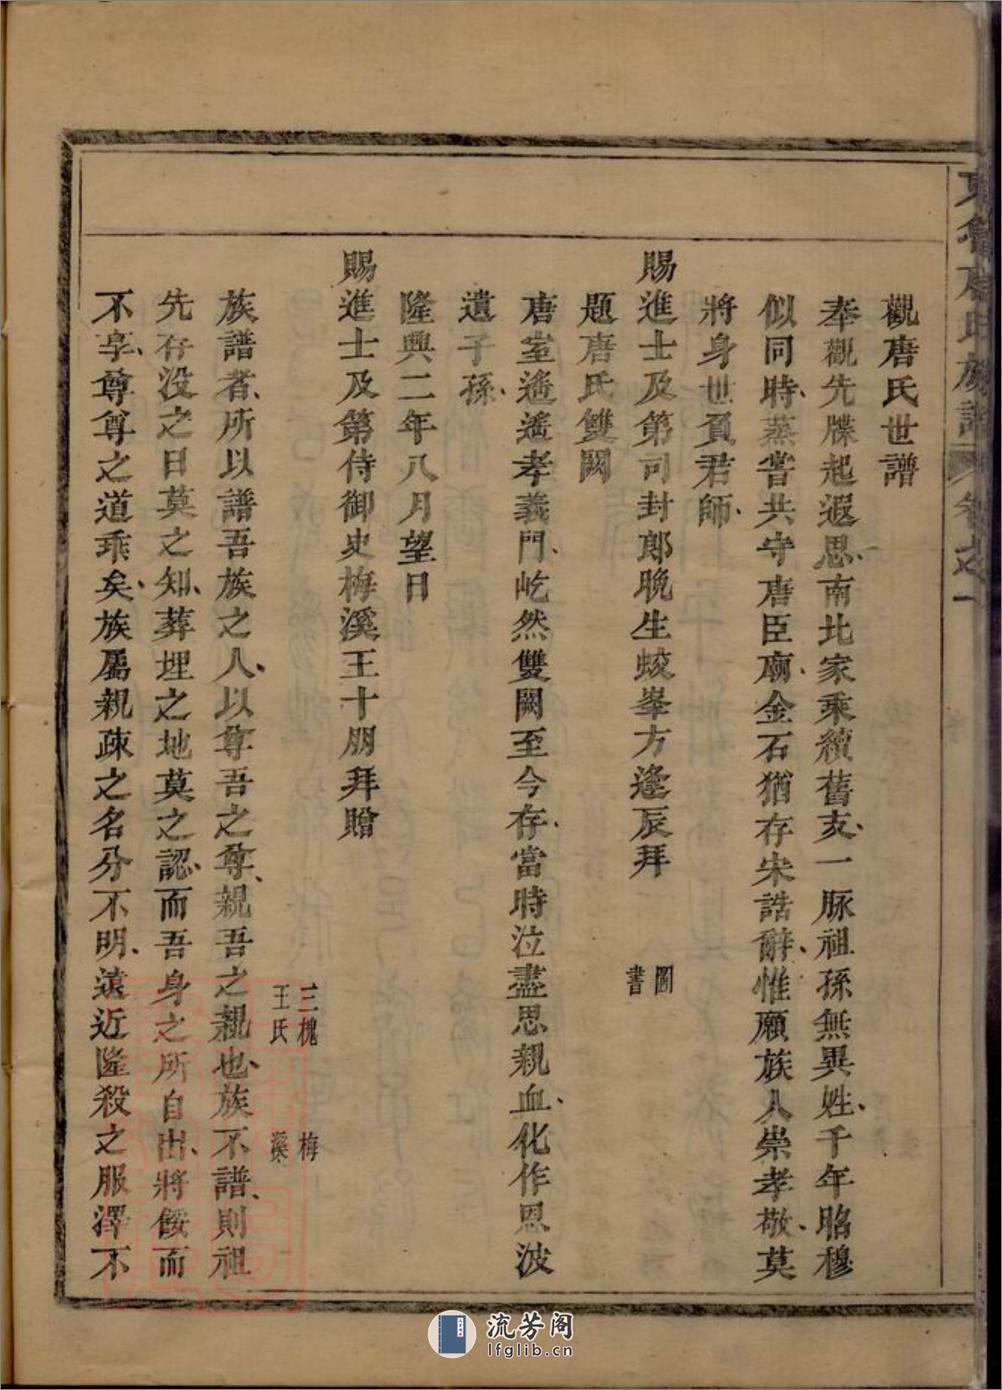 東魯唐氏族譜 卷之一
觀唐氏世譜
奉觀先牒起遐思、南北家乘續舊支、一脉祖孫無異姓、千年昭穆
似同時、蒸嘗共守唐臣廟、金石猶存宋誥辭、惟願族人崇孝敬、莫
將身世負君師、
賜進士及第司封郎晚生蛟峯方逢辰拜 圖書
題唐氏雙闕
唐室遙遙孝義門、屹然雙闕至今存、當時泣盡思親血、化作恩波
遺子孫、
隆興二年八月望日
賜進士及第侍御史梅溪王十朋拜贈
三槐王氏 梅溪
族譜者、所以譜吾族之人、以尊吾之尊、親吾之親也、族不譜、則祖
先存没之日莫之知、葬埋之地莫之認、而吾身之所自出、將餒而
不享、尊尊之道乖矣、族屬親疎之名分不明、遠近隆殺之服澤不
流芳阁
lfglib.cn